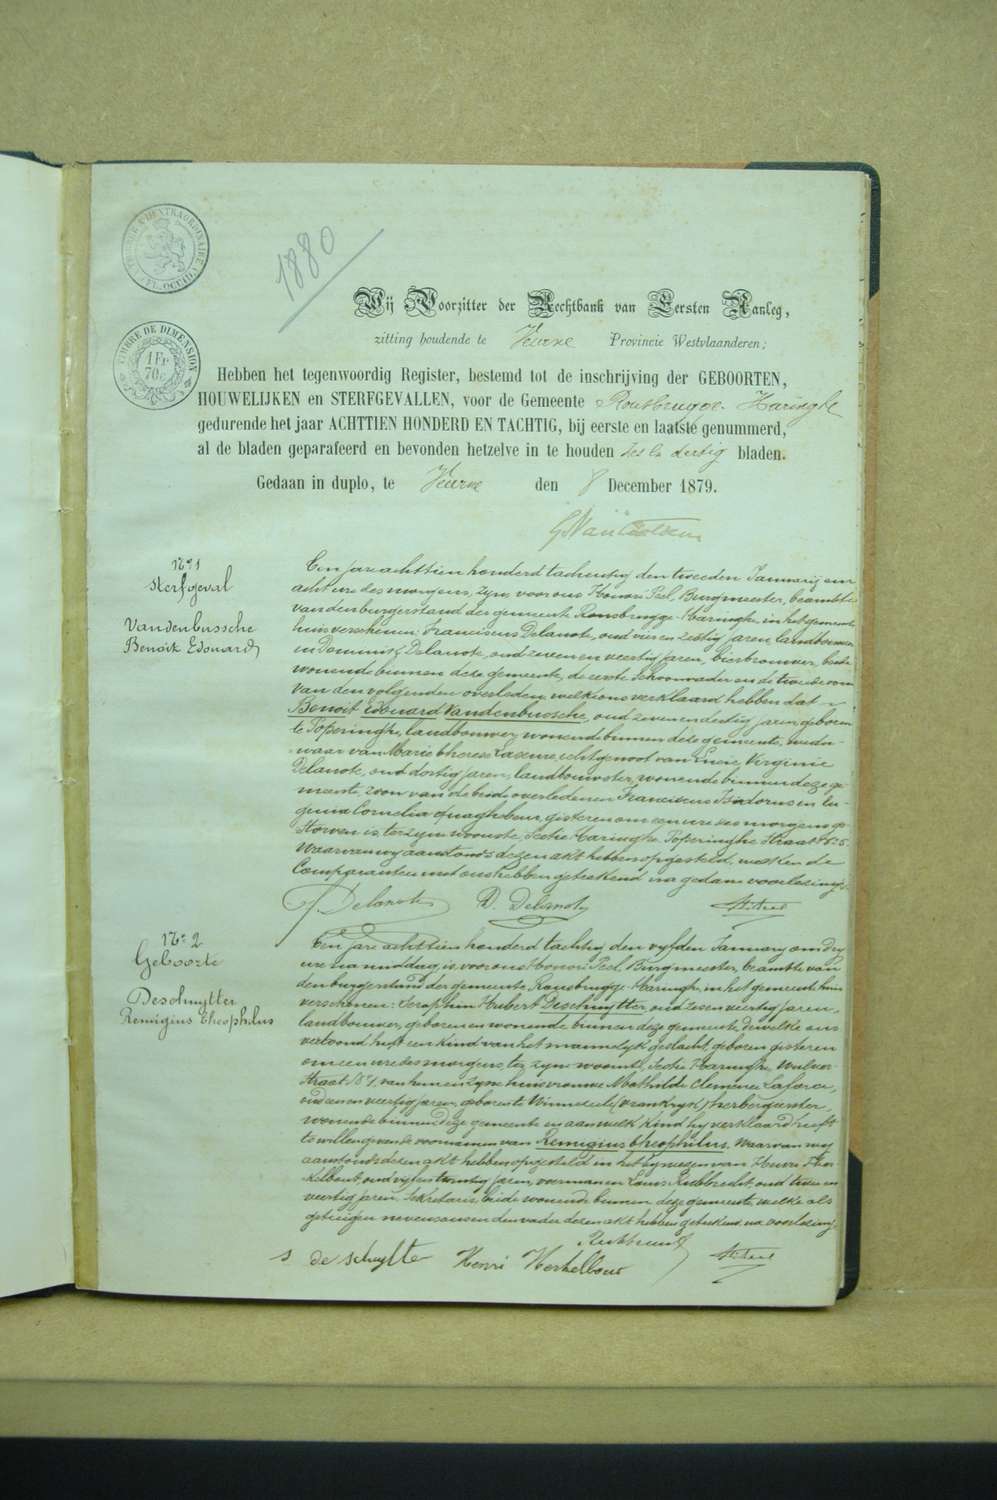 1880
TIMBRE ADEXTRAORDINAIRE
FL. OCCID.
TIMBRE DE DIMENSION
1 Fr
70 c
Wij Voorzitter der Rechtbank van Eersten Aanleg,
zitting houdende te Veurne Provincie Westvlaanderen;
Hebben het tegenwoordig Register, bestemd tot de inschrijving der GEBOORTEN,
HOUWELIJKEN en STERFGEVALLEN, voor de Gemeente Rousbrugge-Haringhe
gedurende het jaar ACHTTIEN HONDERD EN TACHTIG, bij eerste en laatste genummerd,
al de bladen geparafeerd en bevonden hetzelve in te houden zes & dertig bladen.
Gedaan in duplo, te Veurne den 8 December 1879.
No 1
Sterfgeval
Vandenbussche
Benoit Edouard
Een jare achttien honderd tachentig den tweeden Januarij om
acht ure des morgens, zijn voor ons Honoré Peel, Burgmeester, beambte
van den burgerstand der gemeente Rousbrugge-Haringhe, in het gemeente
huis verschenen: Franciscus Delanote, oud vier en zestig jaren, landbouwer
en Dominik Delanote, oud zeven en veertig jaren, bierbrouwer, beide
wonende binnen deze gemeente, de eerste schoonvader en de tweede oom
van den volgenden overleden, welke ons verklaard hebben dat
Benoit Edouard Vandenbussche, oud zeven en dertig jaren geboren
te Poperinghe, landbouwer, wonende binnen deze gemeente, wedu-
waar van Marie Therese Laseure, echtgenoot van Lucie Virginie
Delanote, oud dertig jaren, landbouwster, wonende binnen deze ge
meente, zoon van de beide overledenen Franciscus Isidorus en Eu-
genia Cornelia Quaghebeur, gisteren om een ure des morgens ge-
storven is, ter zijne woonste, Sectie Haringhe, Poperinghe Straat
Waarvan wij aanstonds dezen akt hebben opgesteld, welken de
Comparanten met ons hebben geteekend na gedane voorlezing.
F Delanote D. Delanote
No 2
Geboorte
Deschuytter
Remigius Theophilus
Een jare achttien honderd tachtig den vyfden January om dry
ure na middag, is voor ons Honoré Peel, Burgmeester, beambte van
den burgerstand der gemeente Rousbrugge-Haringhe, in het gemeente huis
verschenen: Seraphin Hubert Deschuytter, oud zes en veertig jaren,
landbouwer, geboren en wonende binnen deze gemeente, dewelke ons
vertoond heeft een kind van het mannelyk geslacht, geboren gisteren
om een ure des morgens, ter zyne woonste, Sectie Haringhe, Wulver-
straat, van hem en zyne huisvrouwe Mathilde Clemence
oud zes en veertig jaren, geboren te Winnezeele (Vrankryk) herbergierster,
wonende binnen deze gemeente en aan welk kind hy verklaard heeft
te willen geven de voornamen van Remigius Theophilus. Waarvan wy
aanstonds dezen akt hebben opgesteld in het bywezen van Henri Her-
kelbout, oud vyf en twintig jaren, veerman en Louis Rubbrecht, oud twee en
veertig jaren, Sekretaris, beide wonende binnen deze gemeente, welke als
getuigen nevens ons en den vader dezen akt hebben geteekend na voorlezing.
Rubbrecht
S de schuytter Henri Herkelbout